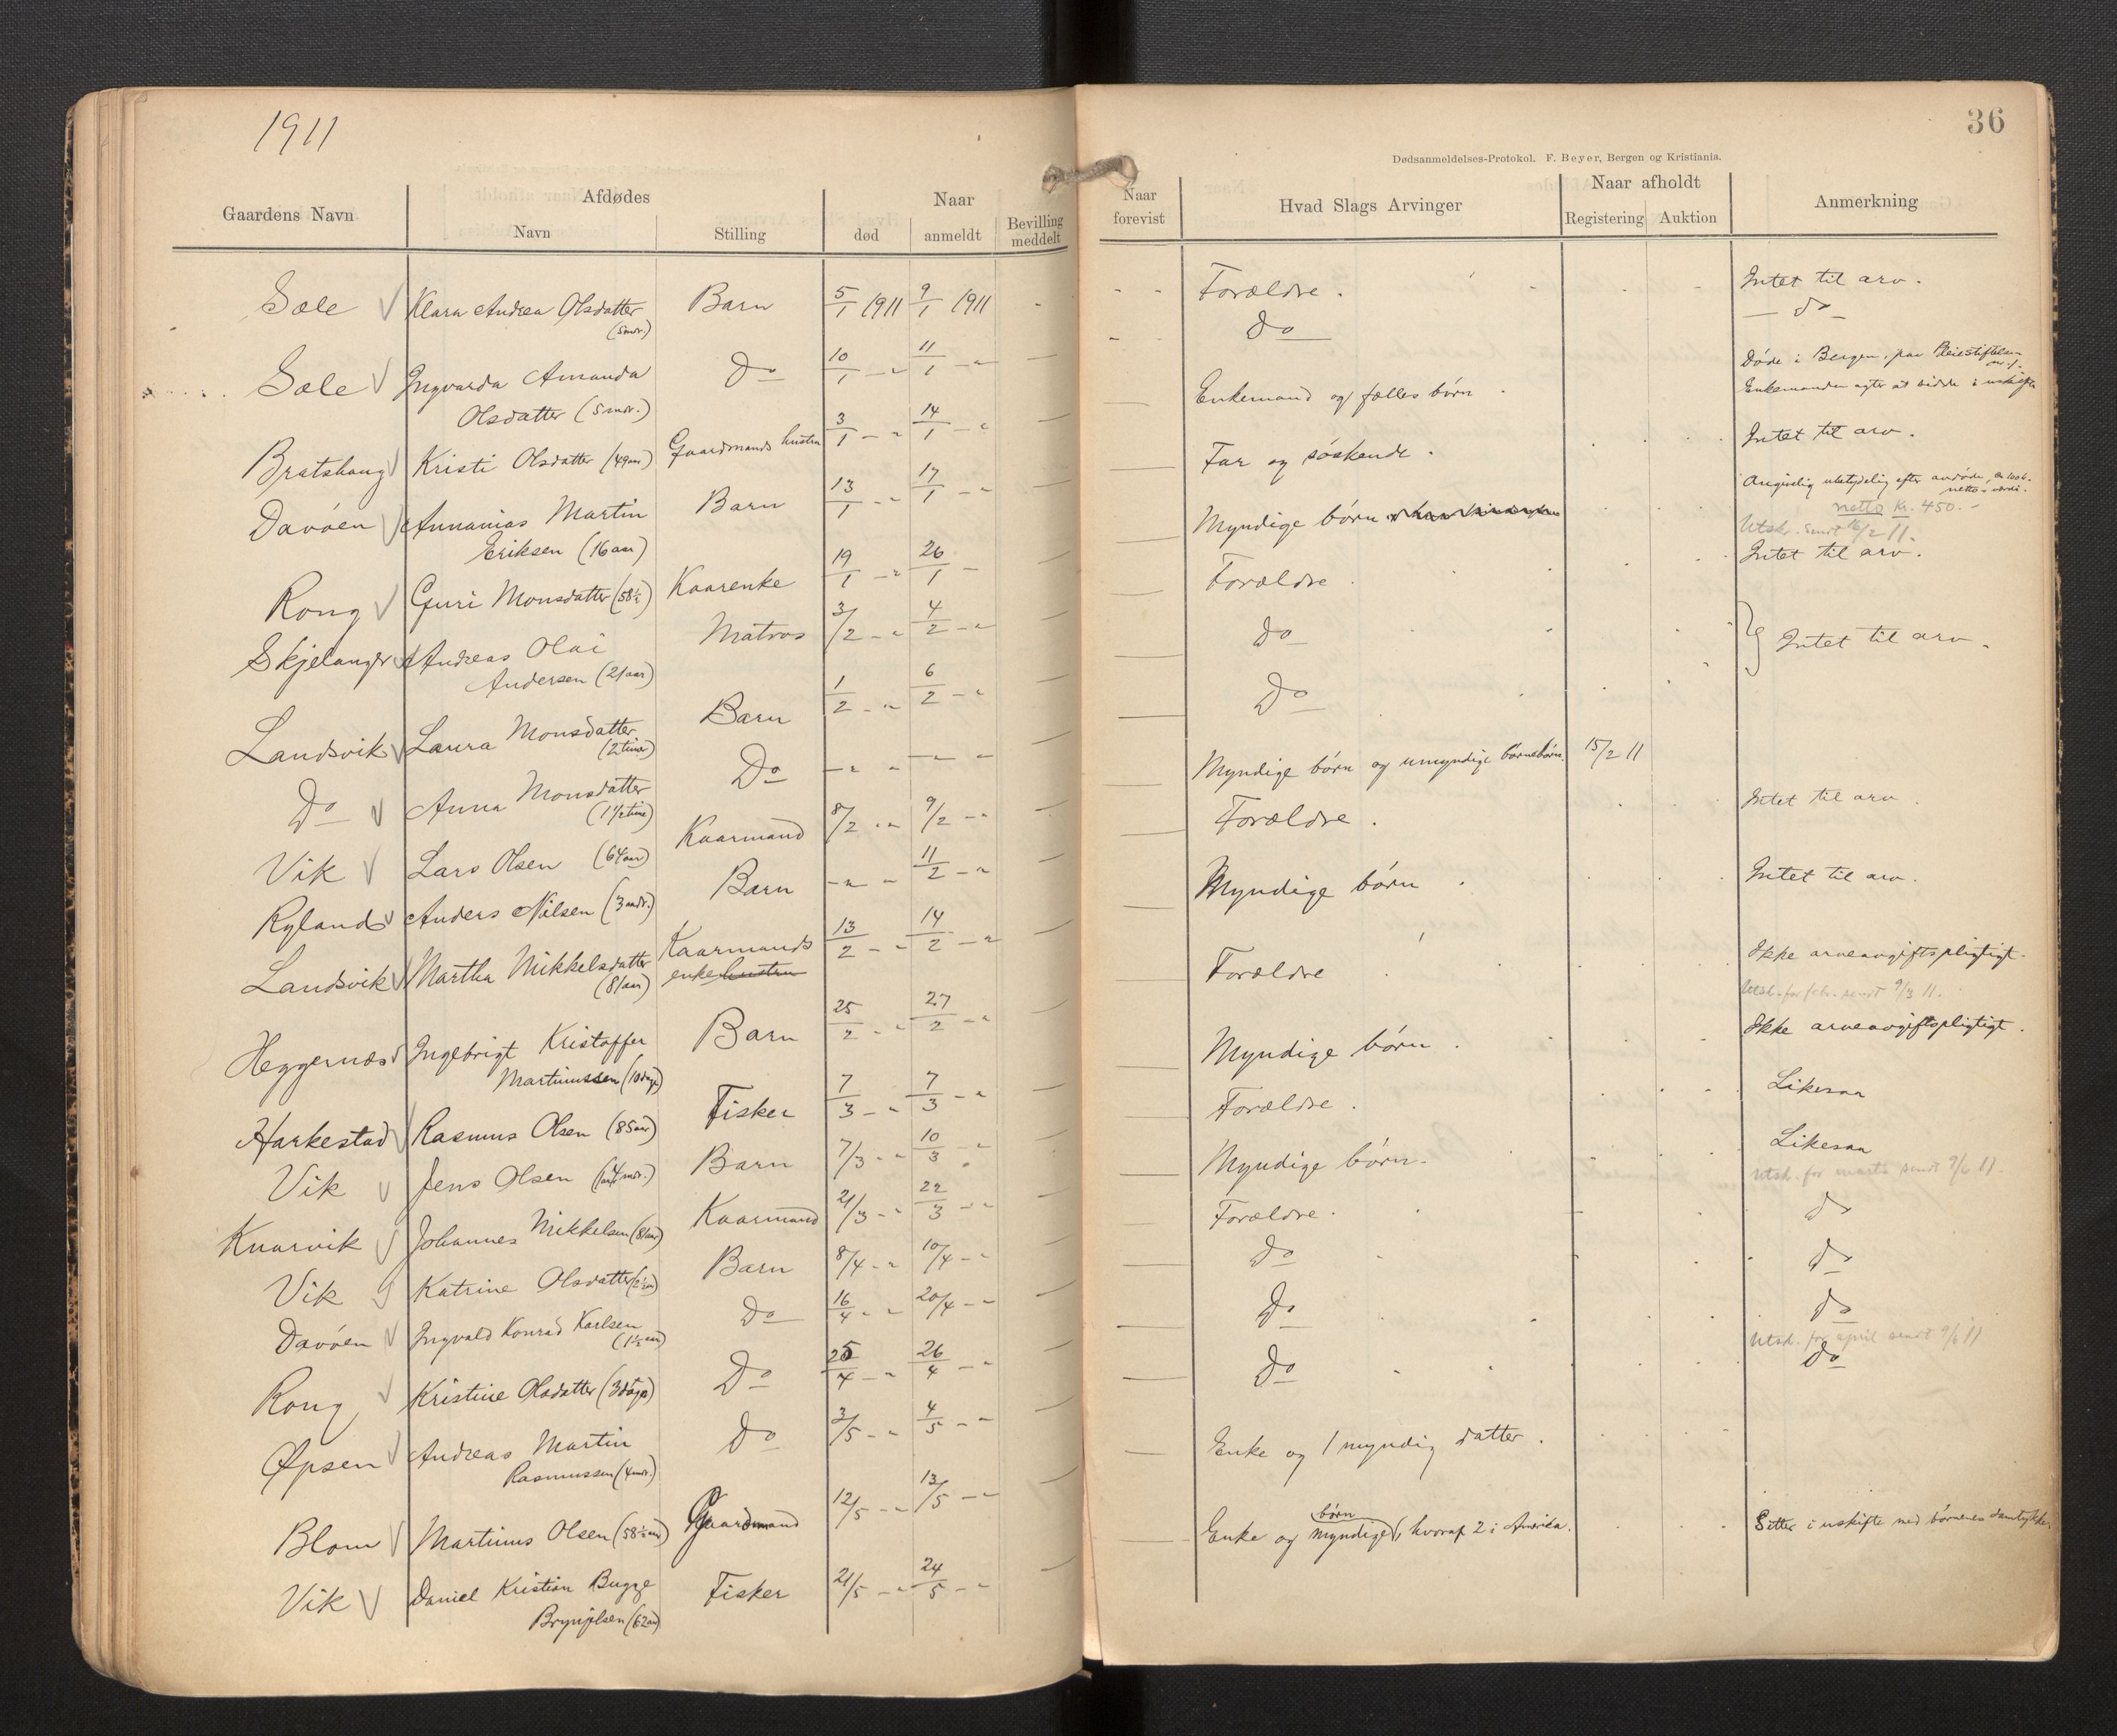 1911
36
Dødsanmeldelses-Protokol. F. Beyer, Bergen og Kristiania.
Gaardens Navn
Afdødes
Navn
Stilling
Naar
død
anmeldt
Bevilling meddelt
Naar forevist
Hvad Slags Arvinger
Naar afholdt
Registering
Auktion
Anmerkning
Sæle Klara Andrea Olsdatter Barn 5/1 1911 9/1 1911
(5 mdr.)
Sæle Ingvarda Amanda Do 10/1 - " 11/1 - "
Olsdatter (5 mdr.)
Bratshaug Kristi Olsdatter (49 aar) Gaardmands hustru 3/1 - " 14/1 - "
Davøen Annanias Martin Barn 13/1 - " 17/1 - "
Eriksen (16 aar)
Rong Guri Monsdatter (58½) Kaarenke 19/1 - " 26/1 -
Skjelanger Andreas Olai Matros 3/2 - " 4/2 - "
Andersen (21 aar)
Landsvik Laura Monsdatter Barn 1/2 - " 6/2 - "
(2 timer)
Do Anna Monsdatter Do - " - - " -
(1½ time)
Vik Lars Olsen (64 aar) Kaarmand 8/2 - " 9/2 - "
Ryland Anders Nilsen (3 mdr.) Barn - " - 11/2 - "
Landsvik Martha Mikkelsdatter Kaarmands 13/2 - " 14/2 - "
(81 aar) enke hustru
Heggernæs Ingebrigt Kristoffer Barn 25/2 - " 27/2 - "
Martinussen (10 dage)
Harkestad Rasmus Olsen (85 aar) Fisker 7/3 - " 7/3 - "
Vik Jens Olsen Barn 7/3 - " 10/3 - "
Knarvik Johannes Mikkelsen (81 aar) Kaarmand 21/3 - " 22/3 - "
Vik Katrine Olsdatter Barn 8/4 - " 10/4 - "
Davøen Ingvald Konrad Karlsen Do 16/4 - " 20/4 - "
(1½ aar)
Rong Kristine Olsdatter (3 dage) Do 25/4 - " 26/4 - "
Øpsen Andreas Martin Do 3/5 - " 4/5 - "
Rasmussen (4 mdr.)
Blom Martinus Olsen (58½ aar) Gaardmand 12/5 - " 13/5 - "
Vik Daniel Kristian Bugge Fisker 21/5 - " 24/5 - "
Brynjelsen (62 aar)
Forældre. Intet til arv.
Do - do -
Døde i Bergen, paa Pleiestiftelsen
no 1.
Enkemand og fælles børn Enkemanden agter at sidde i uskifte
Far og søskende. Intet til arv.
Angivelig ubetydelig efter avdøde,
netto værdi.
Myndige børn netto Kr. 450.-
Utskr. sendt 16/2 11.
Forældre Intet til arv.
Do
Intet til arv.
Do
Myndige børn og umyndige børnebørn. 15/2 11
Forældre. Intet til arv.
Myndige børn. Intet til arv.
Forældre Ikke arveavgiftspligtigt.
Utsk. for feb. sendt 9/3 11.
Myndige børn. Ikke arveavgiftspligtigt.
Forældre. Likesaa
Myndige børn. Likesaa
Utsk. for marts sendt 9/4 11.
Forældre. Do
Do Do
Do Do
Utsk. for april sendt 9/5 11
Do Do
Enke og 1 myndig datter.
børn
Enke og myndige, hvoraf 2 i Amerika. Sitter i uskifte med børnenes samtykke.